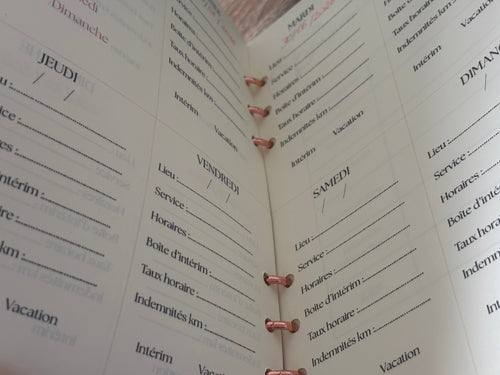 medi
Dimanche
Lieu :
Service :
Horaires :
Boîte d'intérim :
Taux horaire :
Indemnités km :
Intérim Vacation
JEUDI
/ /
Lieu :
Service :
Horaires :
Boîte d'intérim :
Taux horaire :
Indemnités km :
Vacation
VENDREDI
/ /
Lieu :
Service :
Horaires :
Boîte d'intérim :
Taux horaire :
Indemnités km :
Intérim Vacation
MARDI
Lieu :
Service :
Horaires :
Boîte d'intérim :
Taux horaire :
Indemnités km :
Intérim Vacation
Horaires :
Boîte d'intérim :
Taux horaire :
Indemnités km :
Intérim
SAMEDI
/ /
Lieu :
Service :
Horaires :
Boîte d'intérim :
Taux horaire :
Indemnités km :
Vacation
DIMAN
Lieu :
Service :
Horaires :
Boîte d'intérim
Taux horaire
Indemnités km
Int